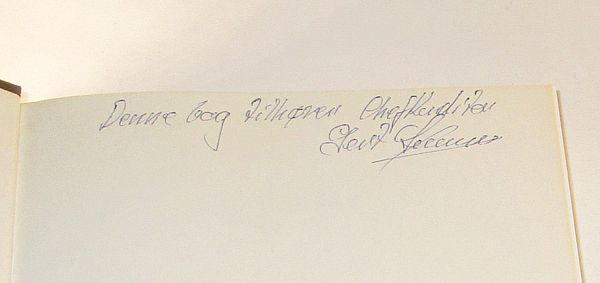 Denne bog tilhører Chefkonditor
Gert